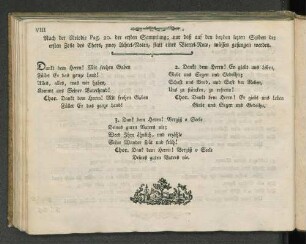 VIII
Nach der Melodie Pag. 20. der ersten Sammlung; nur daß auf den beyden letzten Sylben der
ersten Zeile des Chors, zwey Achtel-Noten, statt einer Viertel-Note, müssen gesungen werden.
Dankt dem Herrn! Mit frohen Gaben
Füllet Er das ganze Land!
Alles, alles, was wir haben,
Kommt aus Seiner Vaterhand!
Chor. Dankt dem Herrn! Mit frohen Gaben
Füllet Er das ganze Land!
2. Dankt dem Herrn! Er giebt uns Leben,
Gnade und Segen
Schaft uns Brod, und
Uns zu stärken, zu erfreun!
Chor. Dankt dem Herrn! Er giebt uns Leben
Gnade und Segen
3. Dank dem Herrn! Vergiß o Seele
Deines guten Vaters nie;
Werd Ihm ähnlich, und erzähle
Seine Wunder spät und früh!
Chor. Dank dem Herrn! Vergiß o Seele
Deines guten Vaters nie.